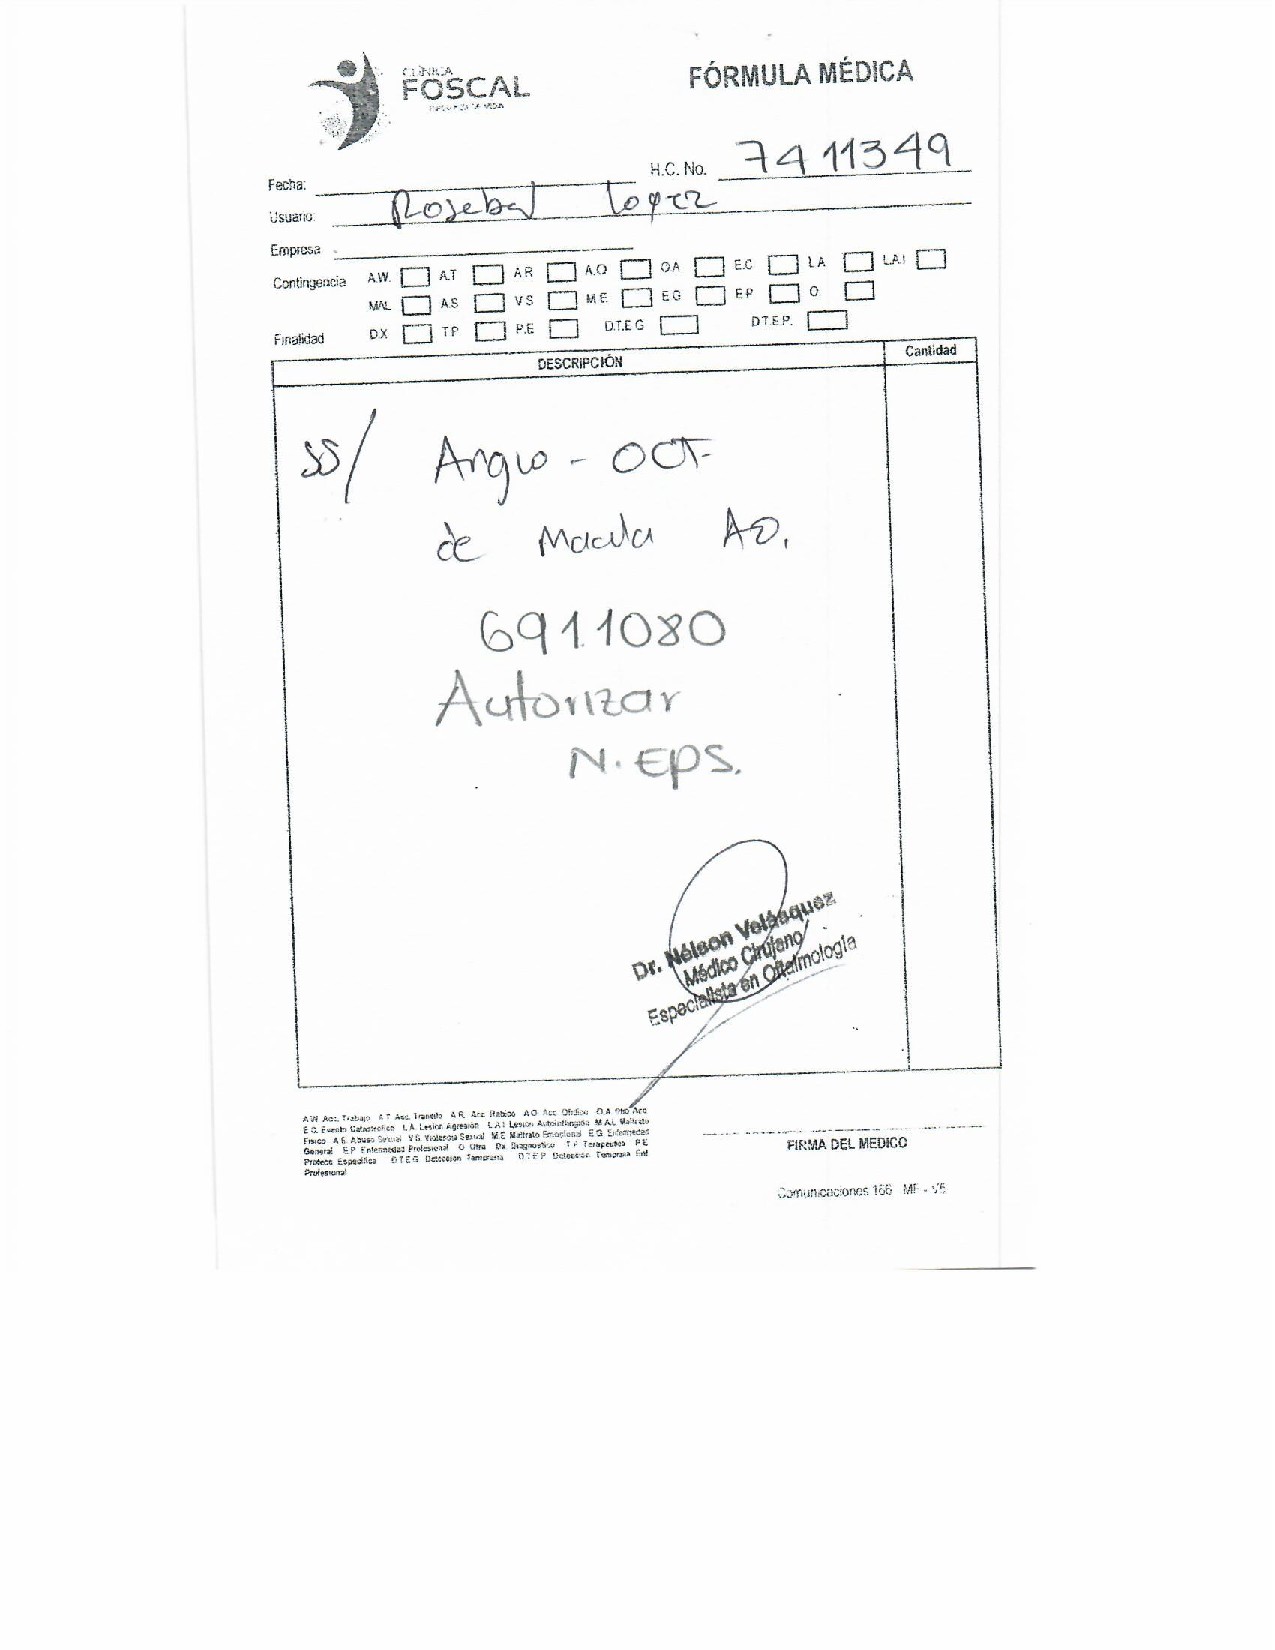 CLÍNICA
FOSCAL
FÓRMULA MÉDICA
H.C. No. 7411349
Fecha:
Usuario: Lopez
Empresa
Contingencia A.W. A.T A R A.O O A E.C L A L.A.I
MAL A S V S M E E G E P O
Finalidad D.X T P P.E D.T.E G D.T.E P.
DESCRIPCIÓN Cantidad
SS/ Angio - OCT
de Macula AO.
6911080
Autorizar
N. EPS.
Dr. Nélson Velásquez
Médico Cirujano
Especialista en Oftalmología
A W Acc. Trabajo A T Acc. Transito A R. Acc Rabico A O Acc Ofidico O A Otro Acc
E C. Evento Catastrofico L A. Lesion Agresion L A I Lesion Autoinfringida M A L Maltrato
Fisico A S. Abuso Sexual V S. Violencia Sexual M E Maltrato Emocional E G Enfermedad
General E P Enfermedad Profesional O Otra Dx Diagnostico T P Terapeutico P E
Protecc Especifica D T E G Deteccion Temprana D T E P Deteccion Temprana Enf
Profesional
FIRMA DEL MEDICO
Comunicaciones 166 MF - V5